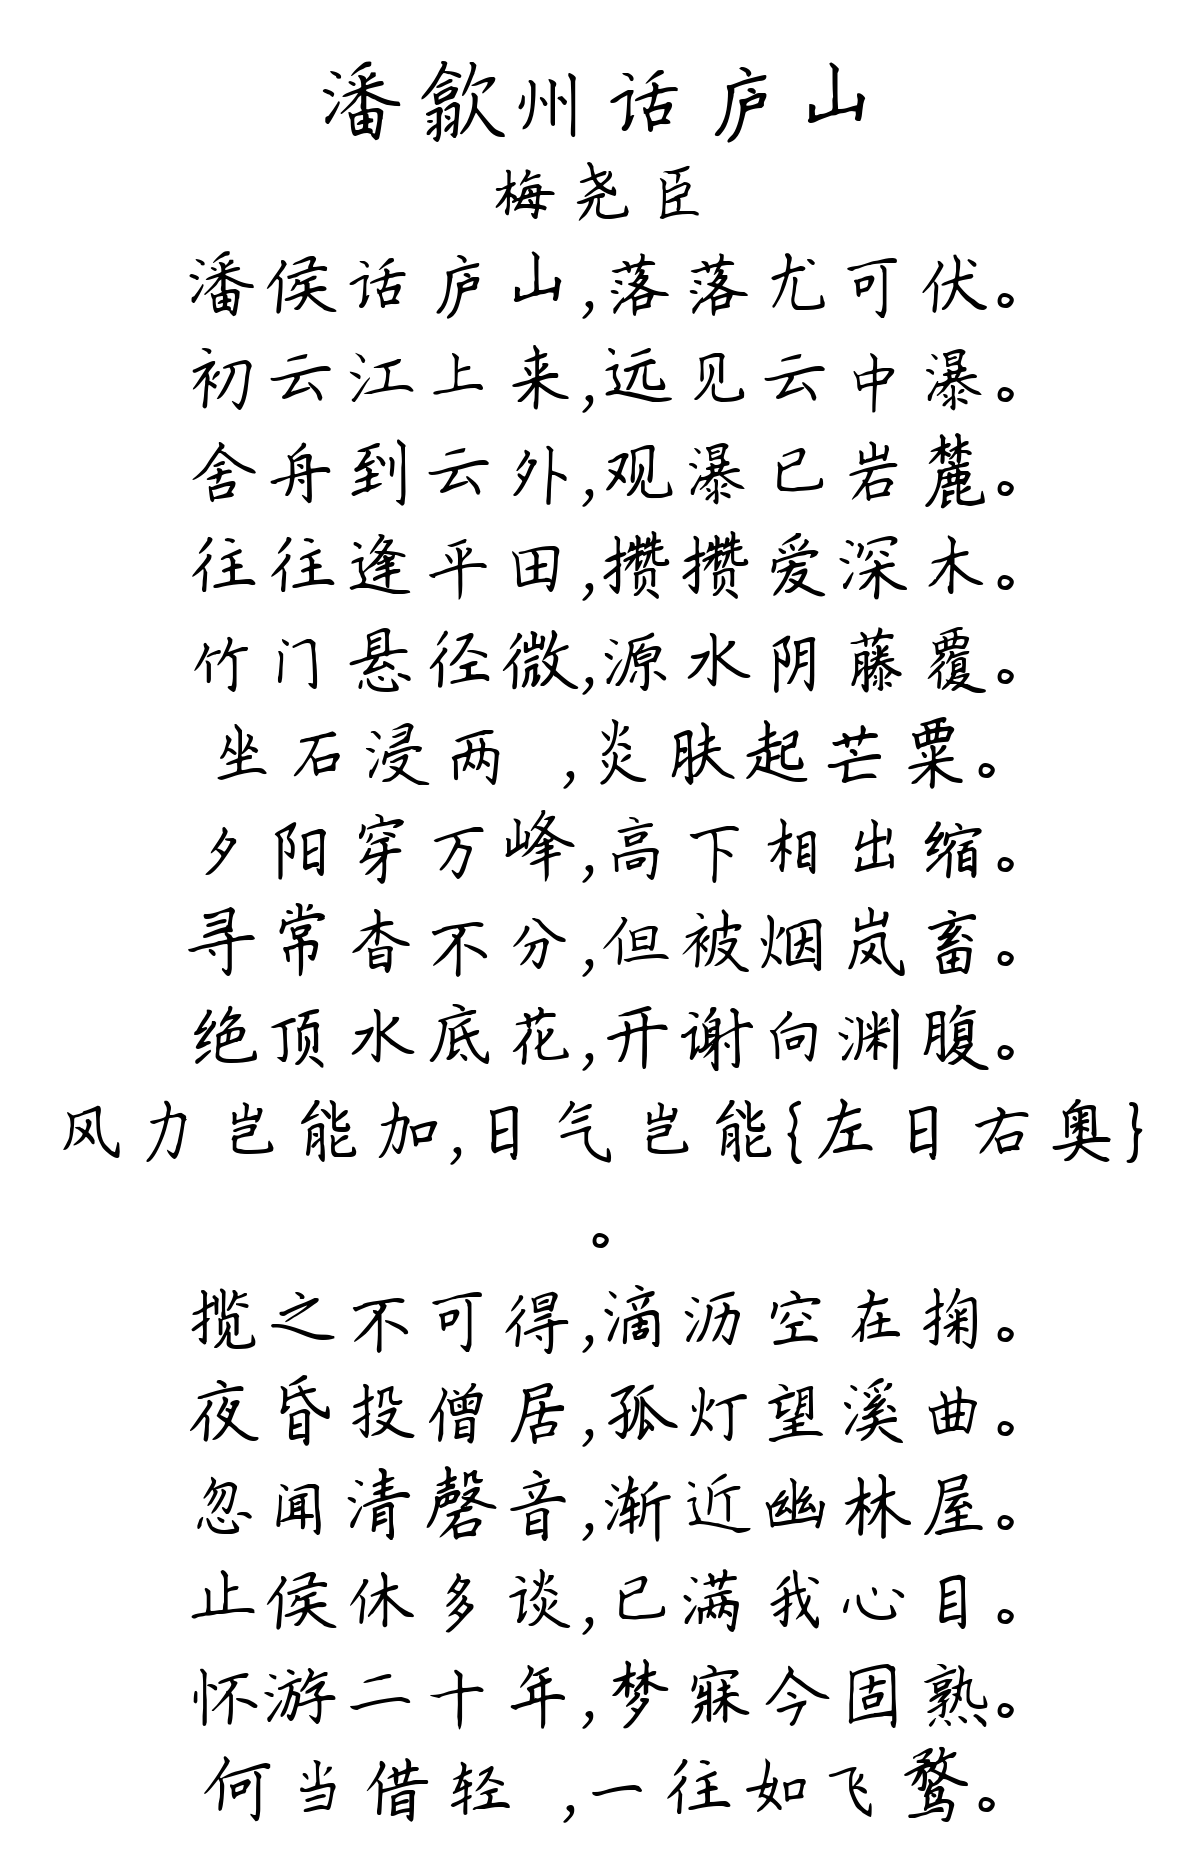 潘歙州话庐山
梅尧臣
潘侯话庐山,落落尤可伏。
初云江上来,远见云中瀑。
舍舟到云外,观瀑已岩麓。
往往逢平田,攒攒爱深木。
竹门悬径微,源水阴藤覆。
坐石浸两 ,炎肤起芒粟。
夕阳穿万峰,高下相出缩。
寻常杳不分,但被烟岚畜。
绝顶水底花,开谢向渊腹。
风力岂能加,日气岂能{左日右奥}
。
揽之不可得,滴沥空在掬。
夜昏投僧居,孤灯望溪曲。
忽闻清磬音,渐近幽林屋。
止侯休多谈,已满我心目。
怀游二十年,梦寐今固熟。
何当借轻 ,一往如飞鹜。